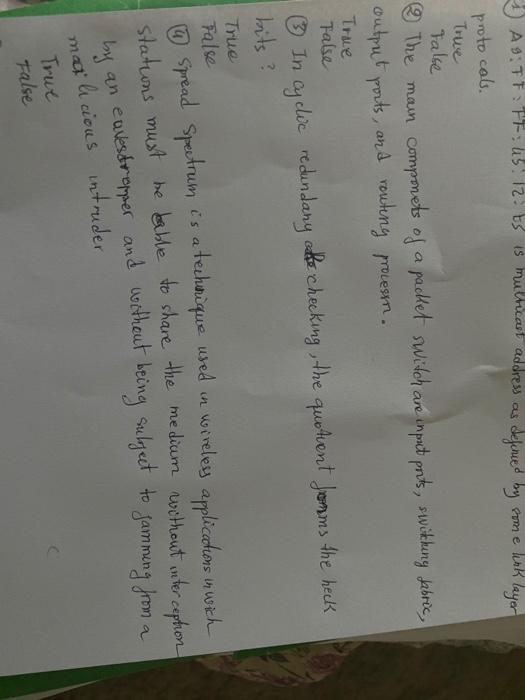 ① A9:FF:FF:45:12:E5 is multicast address as defined by some link layer
protocols.
True
False
② The main componets of a packet switch are input prts, switching fabric,
output ports, and routing processr.
True
False
③ In cyclic redundany checking, the quotient forms the heck
bits?
True
False
④ Spread Spectrum is a technique used in wireless applications in wich
stations must be able to share the medium without interception
by an eavesdropper and without being subject to jamming from a
malicious intruder
True
False